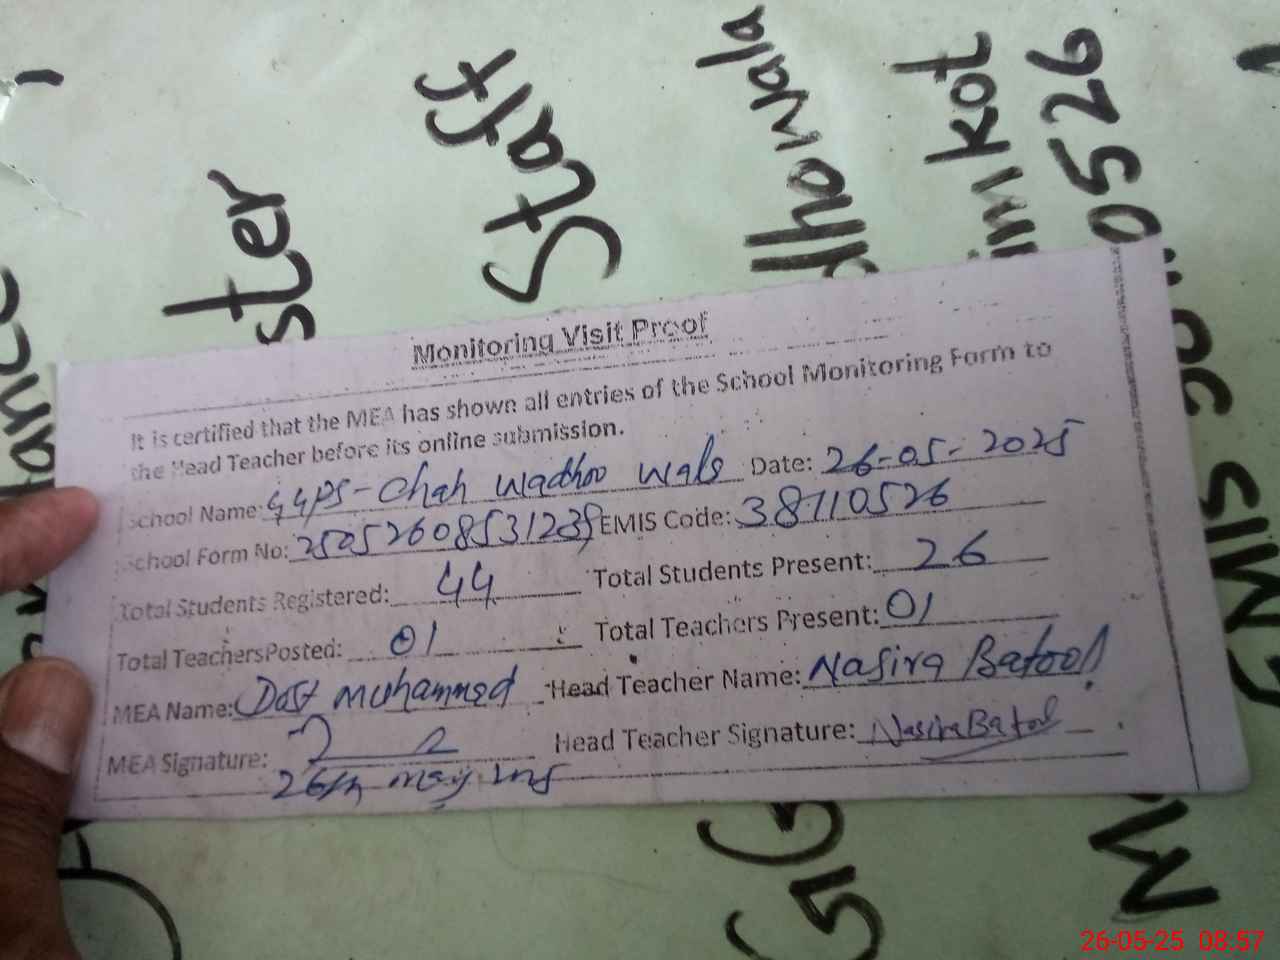 Monitoring Visit Proof
It is certified that the MEA has shown all entries of the School Monitoring Form to
the Head Teacher before its online submission.
School Name: GGPS-Chah Wadhoo Wala Date: 26-05-2025
School Form No: EMIS Code: 38110526
Total Students Registered: 44 Total Students Present: 26
Total Teachers Posted: 01 Total Teachers Present: 01
MEA Name: Dost Muhammed Head Teacher Name: Nasira Batool
MEA Signature: Head Teacher Signature: Nasira Batool
26th May 2025
Staff
ster
dhowala
im kot
0526
26-05-25 08:57